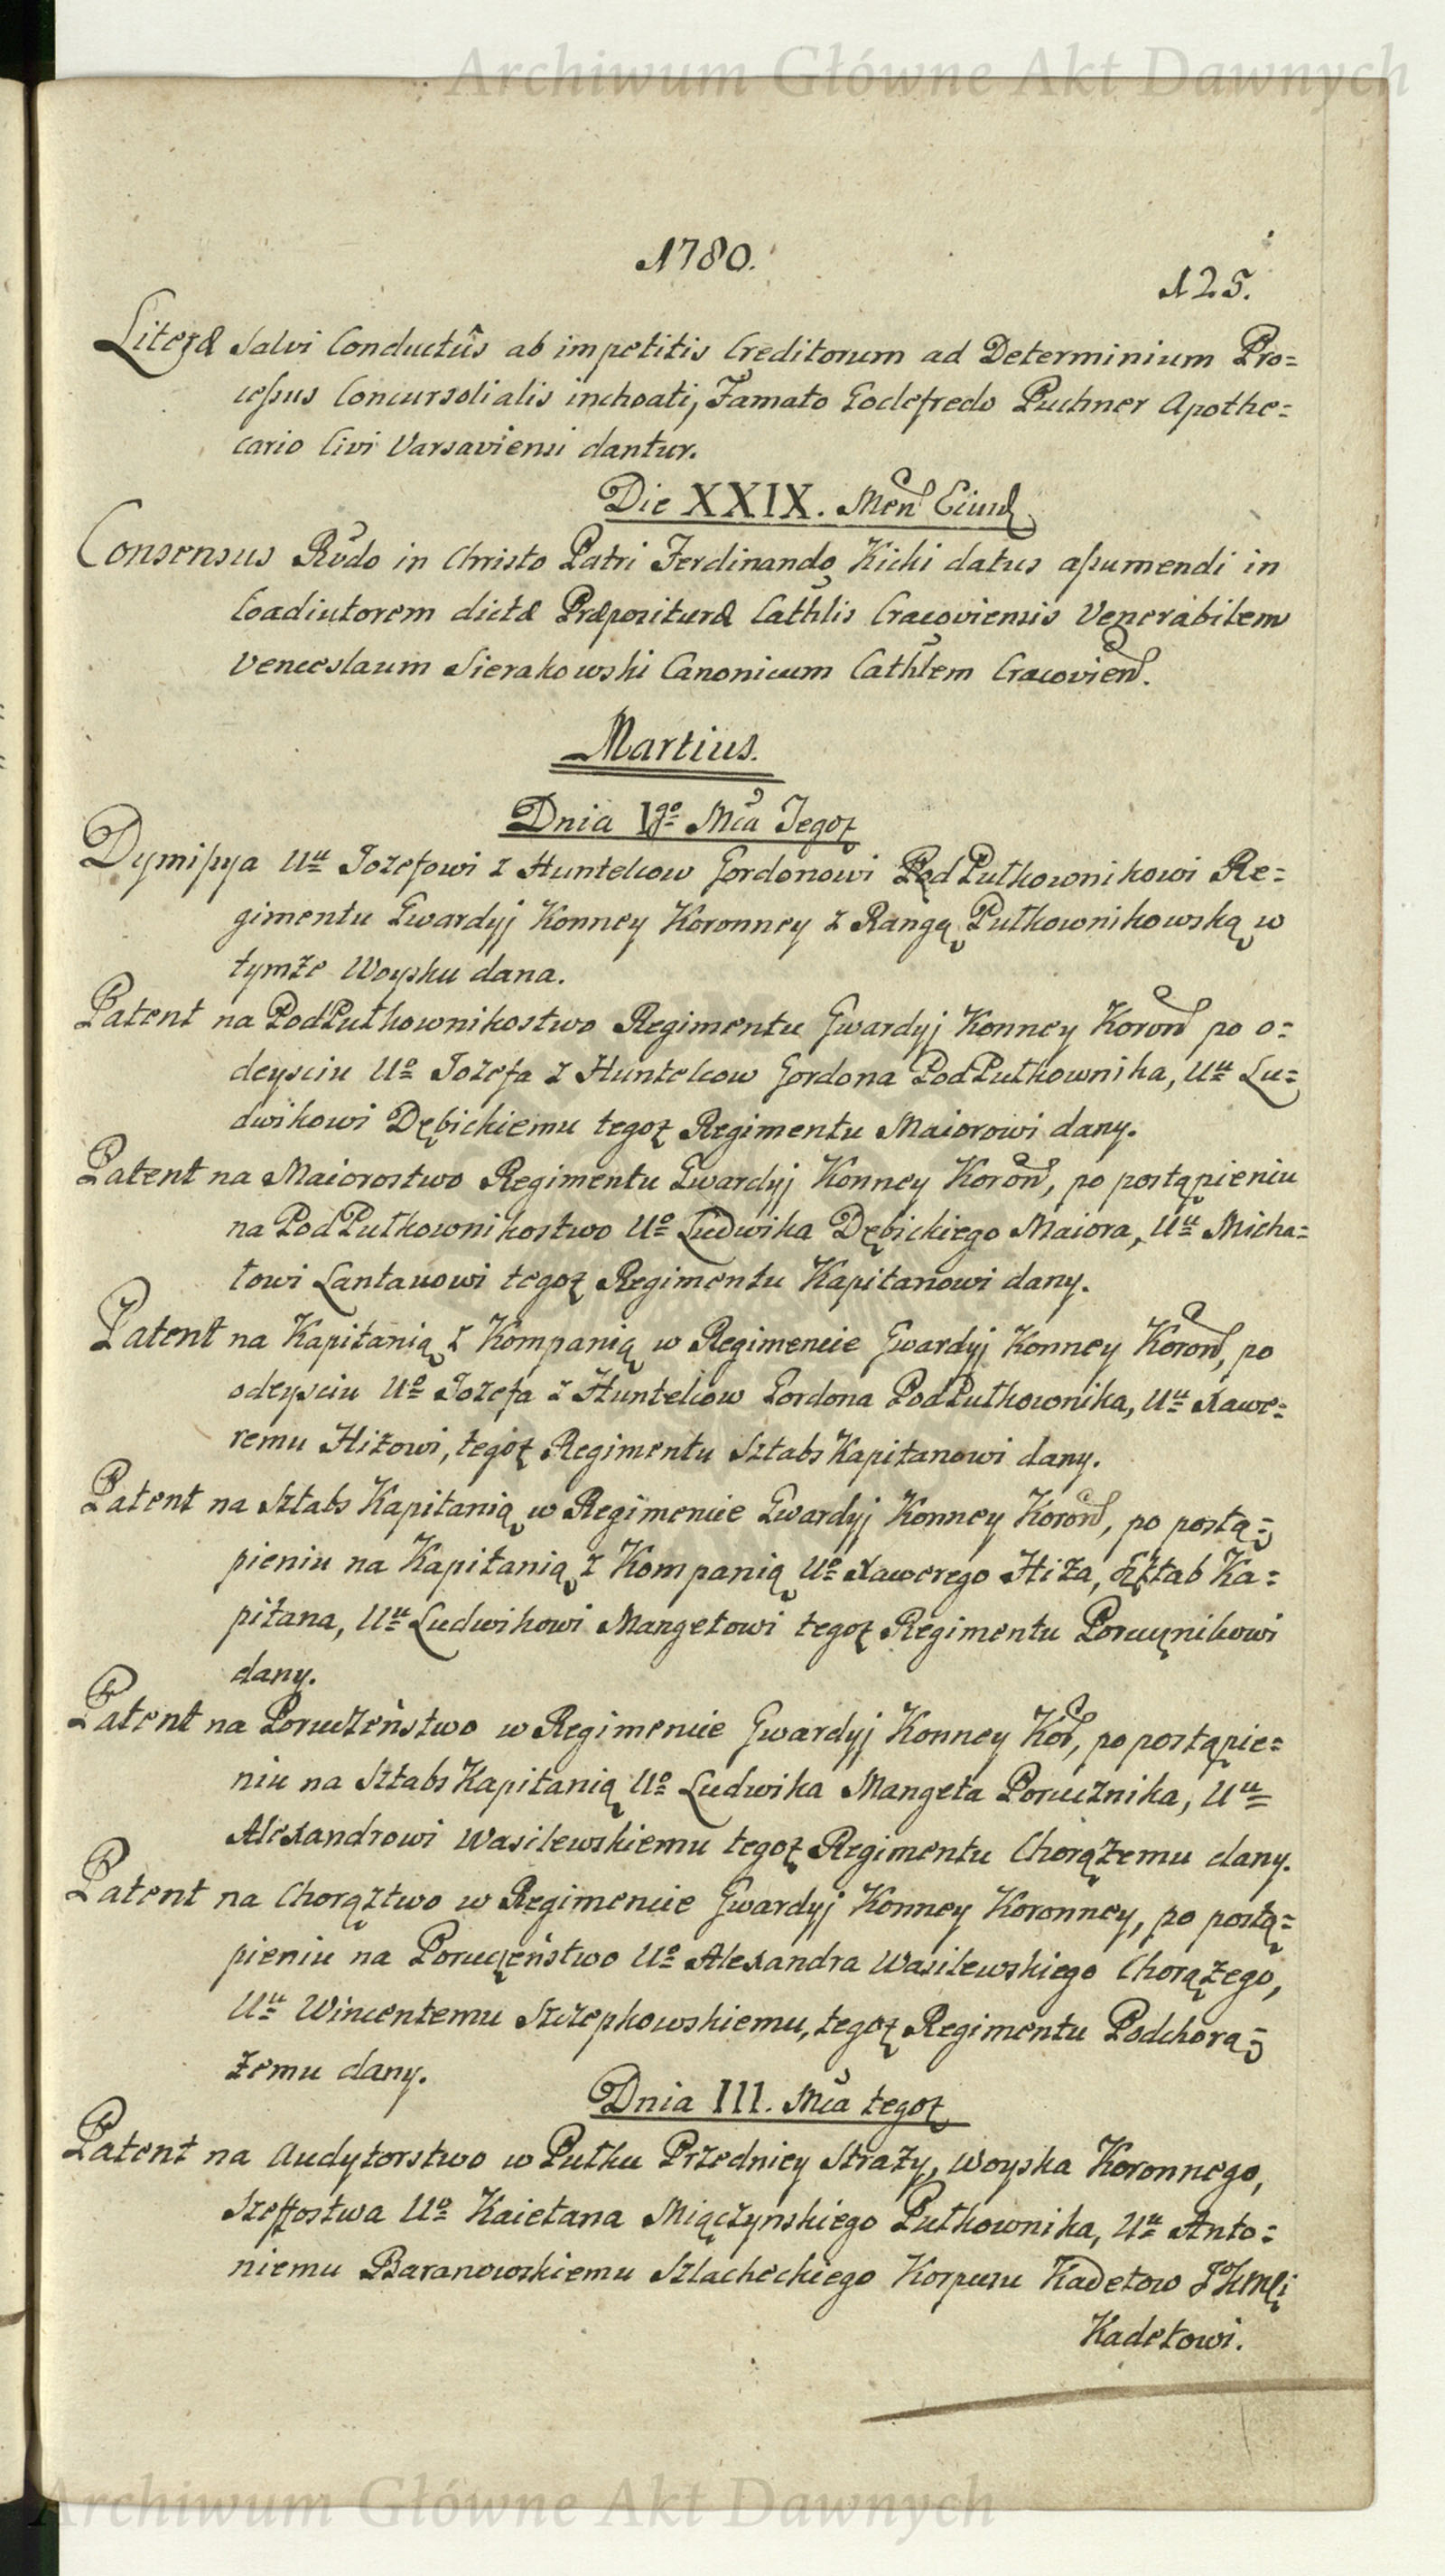 Archiwum Główne Akt Dawnych
1780.
125.
Literæ Salvi Conductûs ab impetitis Creditorum ad Determinium Pro=
cessus Concursolialis inchoati, Famato Godefredo Puchner Apothe=
cario Civi Varsaviensi dantur.
Die XXIX. Men Eiusd
Consensus Rvdo in Christo Patri Ferdinando Kicki datus assumendi in
Coadiutorem dictæ Præposituræ Cathlis Cracoviensis Venerabilem
Venceslaum Sierakowski Canonicum Cathlem Cracovien.
Martius.
Dnia Igo Mca Tegoż
Dymissya Uu Jozefowi z Huntelcow Gordonowi PodPułkownikowi Re=
gimentu Gwardyj Konney Koronney z Rangą Pułkownikowską w
tymże Woysku dana.
Patent na PodPułkownikostwo Regimentu Gwardyj Konney Koron po o=
deysciu Uo Jozefa z Huntelcow Gordona PodPułkownika, Uu Lu=
dwikowi Dębickiemu tegoż Regimentu Maiorowi dany.
Patent na Maiorostwo Regimentu Gwardyj Konney Koron, po postąpieniu
na PodPułkownikostwo Uo Ludwika Dębickiego Maiora, Uu Micha=
łowi Lantauowi tegoż Regimentu Kapitanowi dany.
Patent na Kapitanią z Kompanią w Regimencie Gwardyj Konney Koron, po
odeysciu Uo Jozefa z Huntelcow Gordona PodPułkownika, Uu Xawe=
remu Hiżowi, tegoż Regimentu Sztabs Kapitanowi dany.
Patent na Sztabs Kapitanią w Regimencie Gwardyj Konney Koron, po postą=
pieniu na Kapitanią z Kompanią Uo Xawerego Hiża, Sztab Ka=
pitana, Uu Ludwikowi Mangetowi tegoż Regimentu Porucznikowi
dany.
Patent na Poruczeństwo w Regimencie Gwardyj Konney Kor, po postąpie=
niu na Sztabs Kapitanią Uo Ludwika Mangeta Porucznika, Uu
Alexandrowi Wasilewskiemu tegoż Regimentu Chorążemu dany.
Patent na Chorąztwo w Regimencie Gwardyj Konney Koronney, po postą=
pieniu na Poruczeństwo Uo Alexandra Wasilewskiego Chorążego,
Uu Wincentemu Szczepkowskiemu, tegoż Regimentu Podchorą=
żemu dany.
Dnia III. Mca tegoż
Patent na Audytorstwo w Pułku Przedniey Straży, Woyska Koronnego,
Szeffostwa Uo Kaietana Miączynskiego Pułkownika, Uu Anto=
niemu Baranowskiemu Szlacheckiego Korpusu Kadetow
Kadetowi.
Archiwum Główne Akt Dawnych